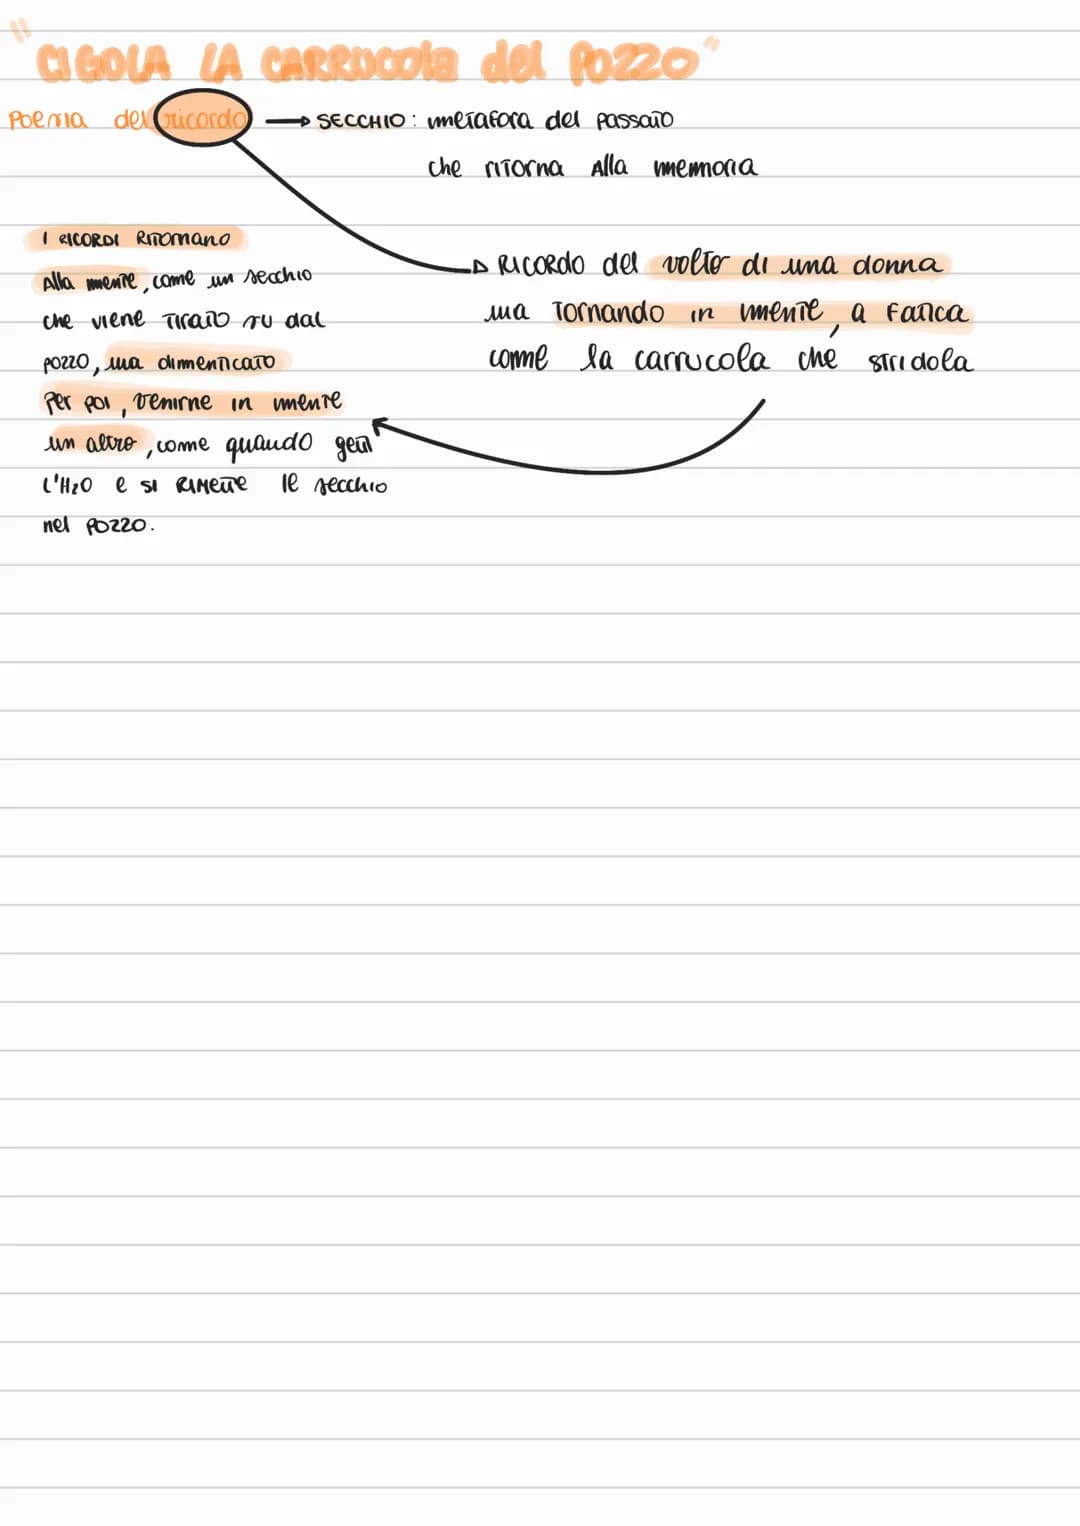 "CIGOLA LA CARRUCOLA del POZZO"
Poesia del ricordo → SECCHIO: metafora del passato
che ritorna alla memoria
I RICORDI RITORNANO
Alla mente, come un secchio
che viene TIRATO su dal
pozzo, ma dimenticato
Per poi, venirne in mente
un altro, come quando getti
L'H₂O e si RIMETTE il secchio
nel POZZO.
RICORDO del volto di una donna
ma TORNANDO in mente, a FATICA
come la carrucola che STRIDOLA